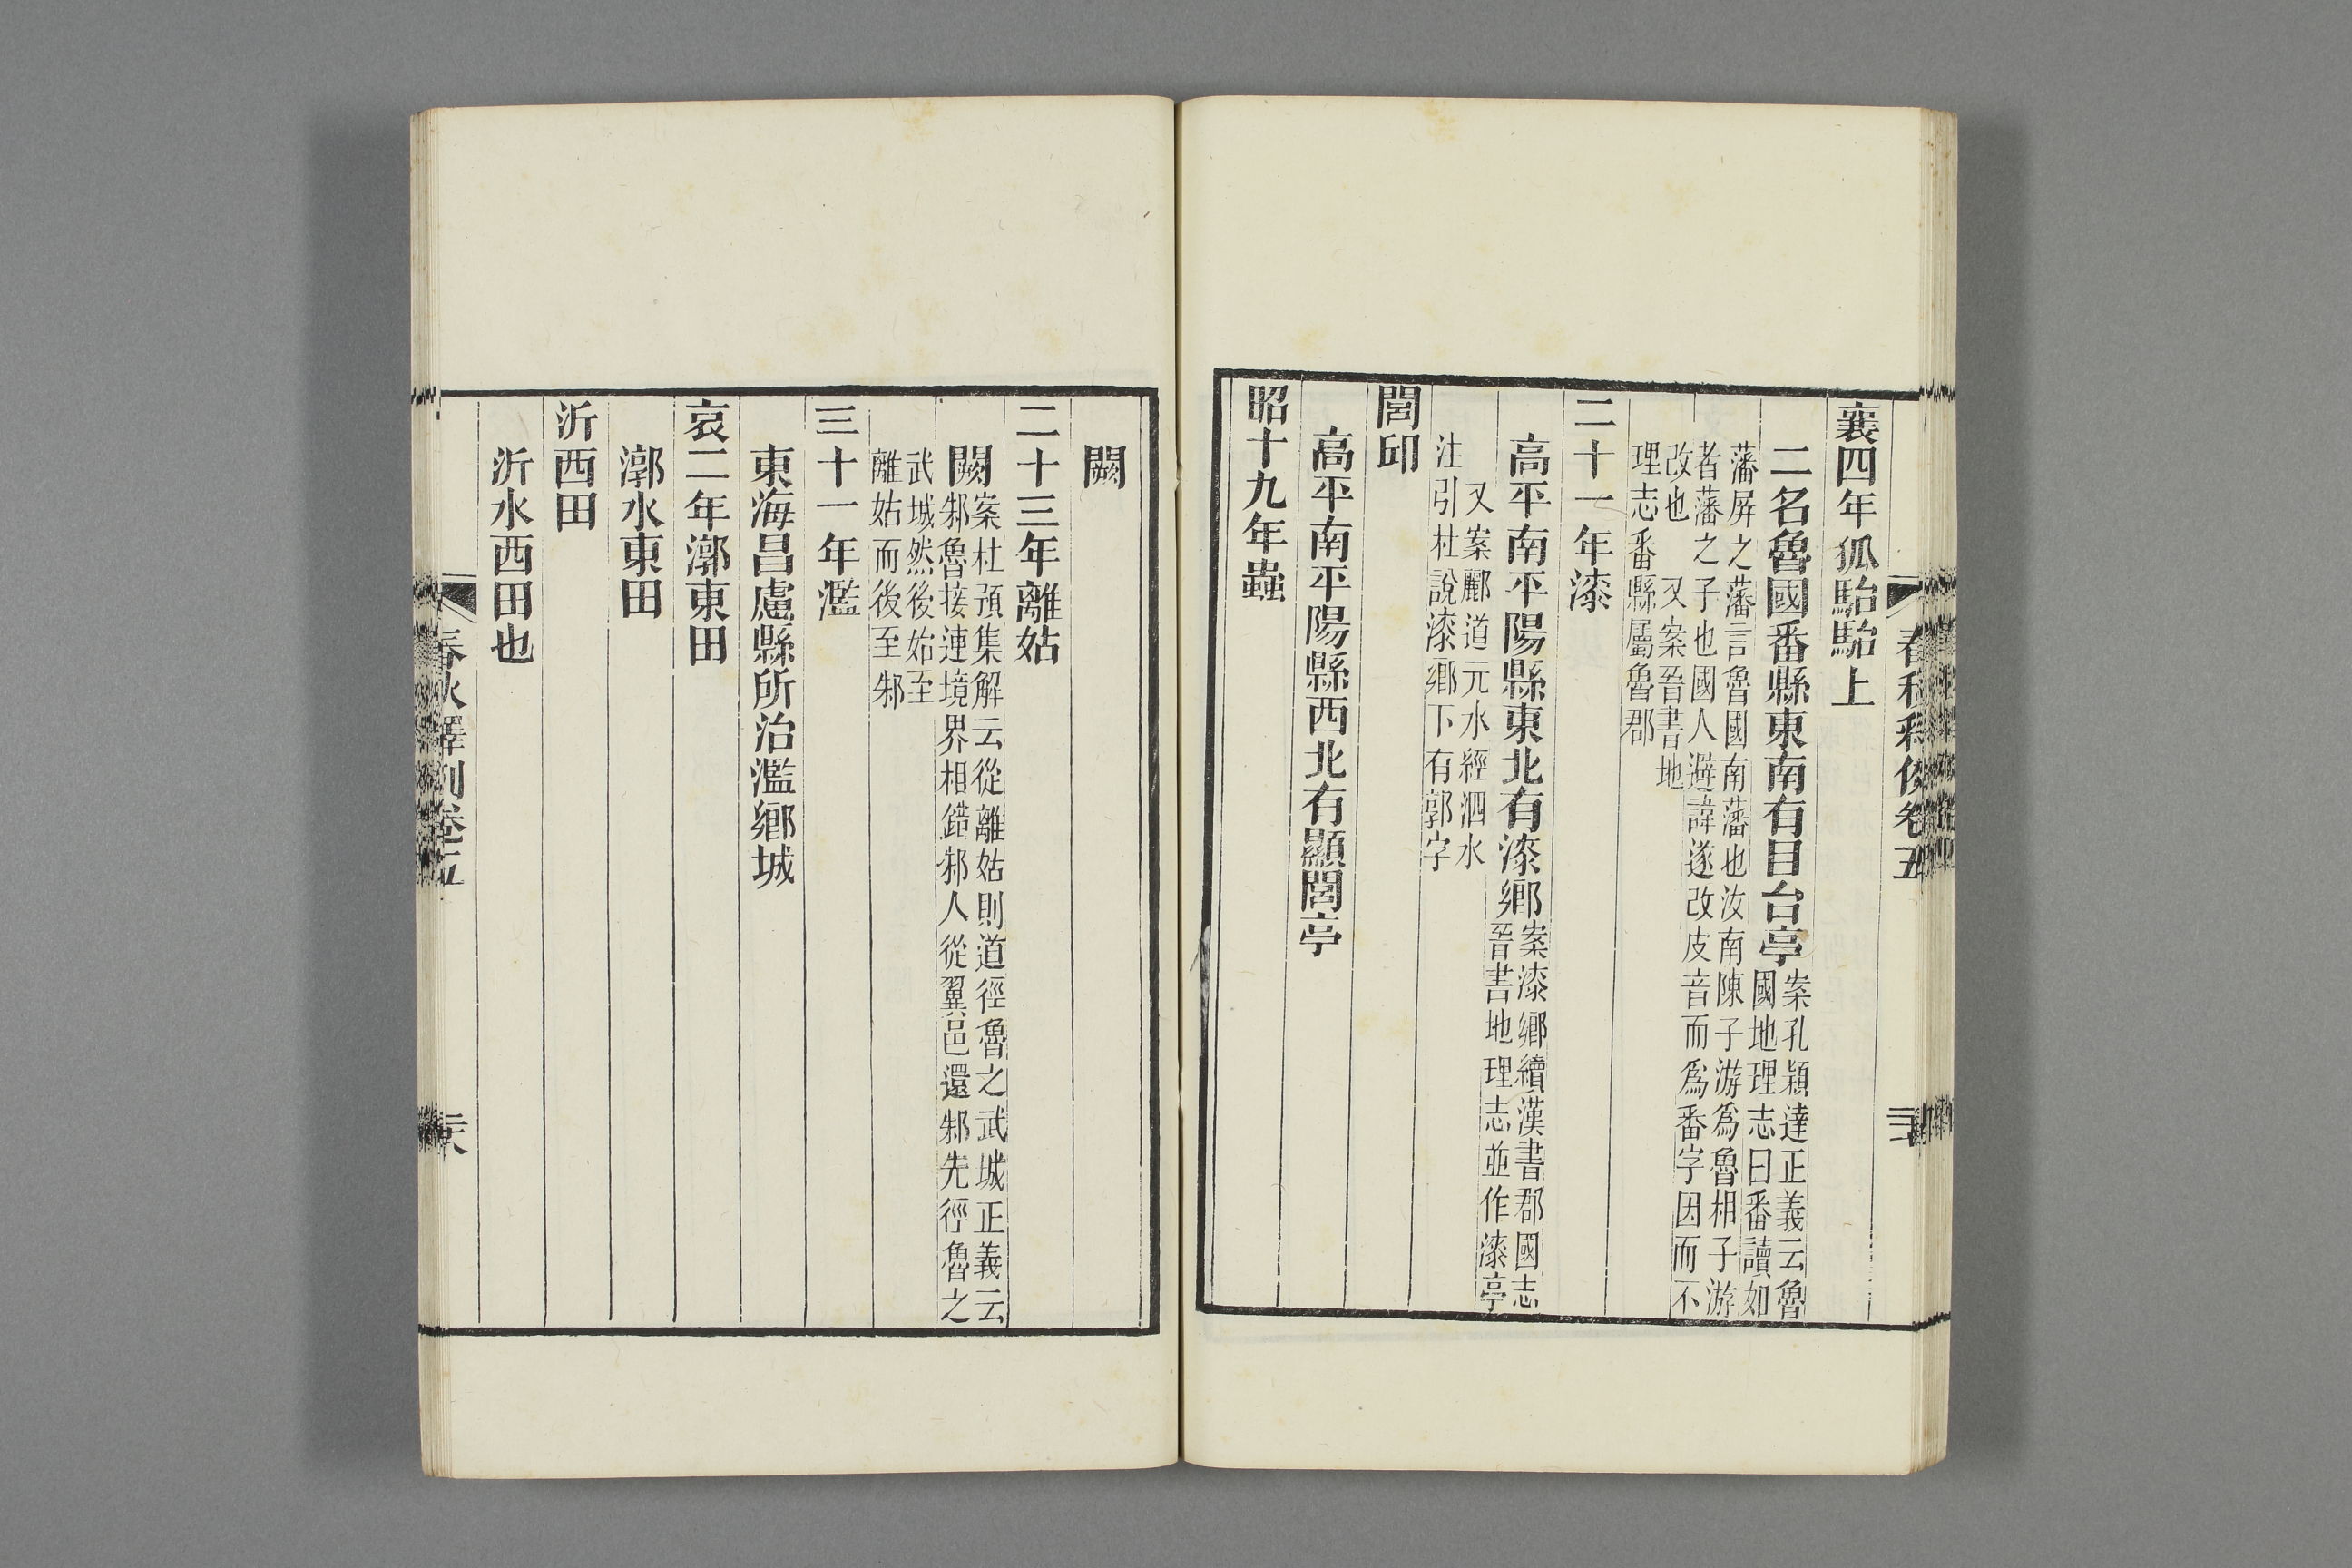 襄四年狐駘駘上
二名魯國番縣東南有目台亭案孔穎達正義云魯
國地理志曰番讀如
藩屏之藩言魯國南藩也汝南陳子游爲魯相子游
者藩之子也國人避諱遂改皮音而爲番字因而不
改也　又案晉書地
理志番縣屬魯郡
二十一年漆
高平南平陽縣東北有漆鄉案漆鄉續漢書郡國志
晉書地理志並作漆亭
又案酈道元水經泗水
注引杜說漆鄉下有郭字
閭邱
高平南平陽縣西北有顯閭亭
昭十九年蟲
闕
二十三年離姑
闕案杜預集解云從離姑則道徑魯之武城正義云
邾魯接連境界相錯邾人從翼邑還邾先徑魯之
武城然後始至
離姑而後至邾
三十一年濫
東海昌慮縣所治濫鄉城
哀二年漷東田
漷水東田
沂西田
沂水西田也
春秋釋例卷五
二六